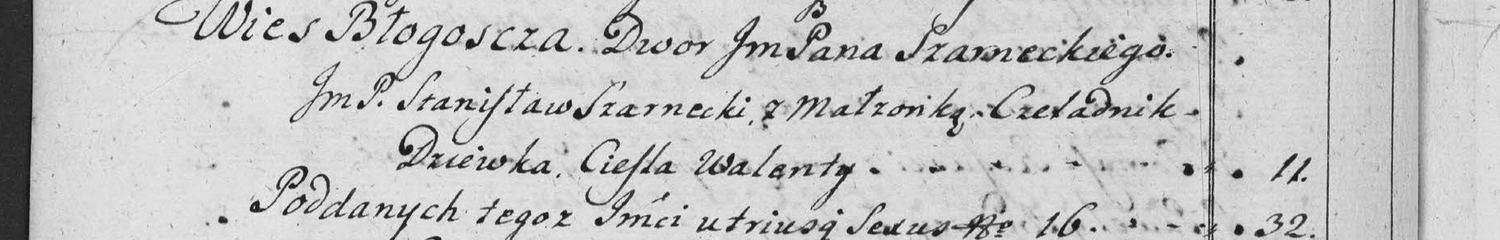 Wies Błogoscza. Dwor Jm Pana Szarneckiego.
Jm P. Stanisław Szarnecki, z Małzonką, Czeladnik
Dziewka, Ciesla Walenty . . . . . . . 11.
Poddanych tegoz Jmci utriusq Sexus No 16. . . . . 32.